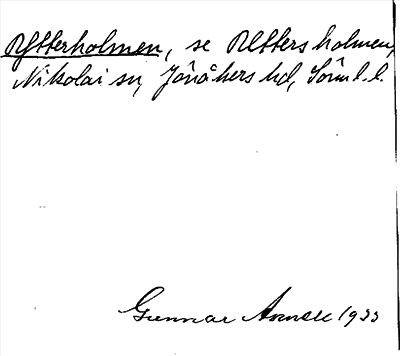 Ytterholmen, se Ytters holmen,
Nikolai sn, Jönåkers hd, Sörml. l.
Gunnar 1933